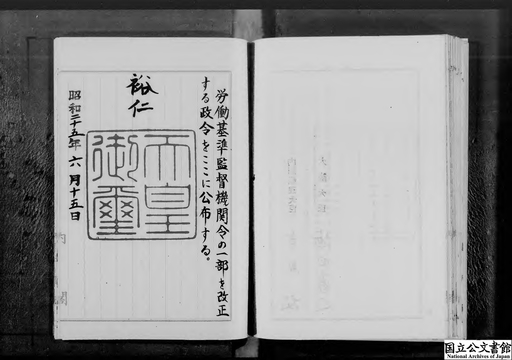 労働基準監督機関令の一部を改正
する政令をここに公布する。
裕仁
天皇
御璽
昭和二十五年六月十五日
内閣
国立公文書館
National Archives of Japan